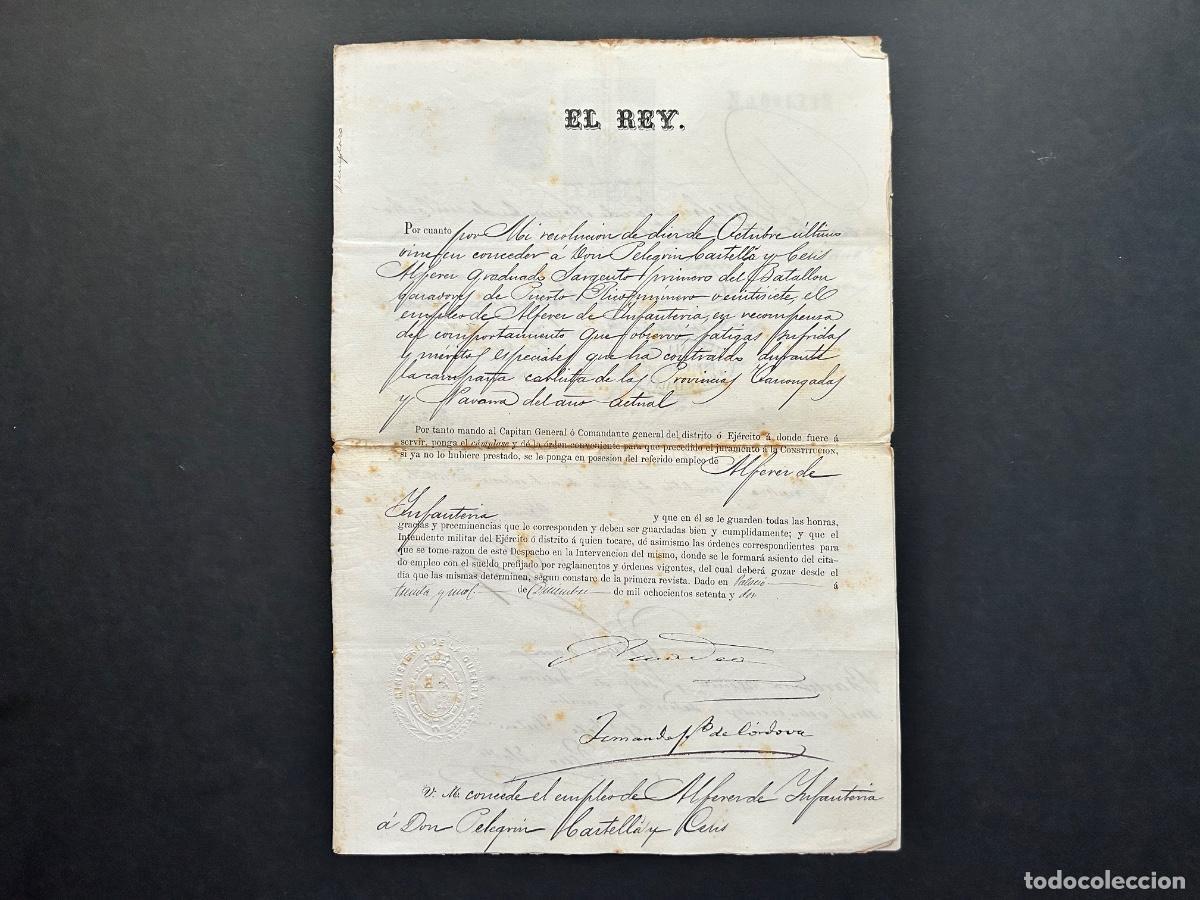 EL REY.
Por cuanto por Mi resolucion de diez de Octubre último
vine en conceder á Don Pelegrin Castellá y
Alferez graduado Sargento primero del Batallon
Cazadores de Puerto Rico número veintisiete, el
empleo de Alferez de Infanteria, en recompensa
del comportamiento que observó, fatigas sufridas
y méritos especiales que ha contraido durante
la campaña carlista de las Provincias Vascongadas
y Navarra del año actual
Por tanto mando al Capitan General ó Comandante general del distrito ó Ejército á donde fuere á
servir, ponga el cúmplase y dé la órden conveniente para que precedido el juramento á la CONSTITUCION,
si ya no lo hubiere prestado, se le ponga en posesion del referido empleo de Alferez de
Infanteria y que en él se le guarden todas las honras,
gracias y preeminencias que le corresponden y deben ser guardadas bien y cumplidamente; y que el
Intendente militar del Ejército ó distrito á quien tocare, dé asimismo las órdenes correspondientes para
que se tome razon de este Despacho en la Intervencion del mismo, donde se le formará asiento del cita-
do empleo con el sueldo prefijado por reglamentos y órdenes vigentes, del cual deberá gozar desde el
dia que las mismas determinen, segun constare de la primera revista. Dado en Palacio á
treinta y uno de Diciembre de mil ochocientos setenta y dos
MINISTERIO DE LA GUERRA
Amadeo
Fernando de Córdova
V. M. concede el empleo de Alferez de Infanteria
á Don Pelegrin Castellá y
todocoleccion